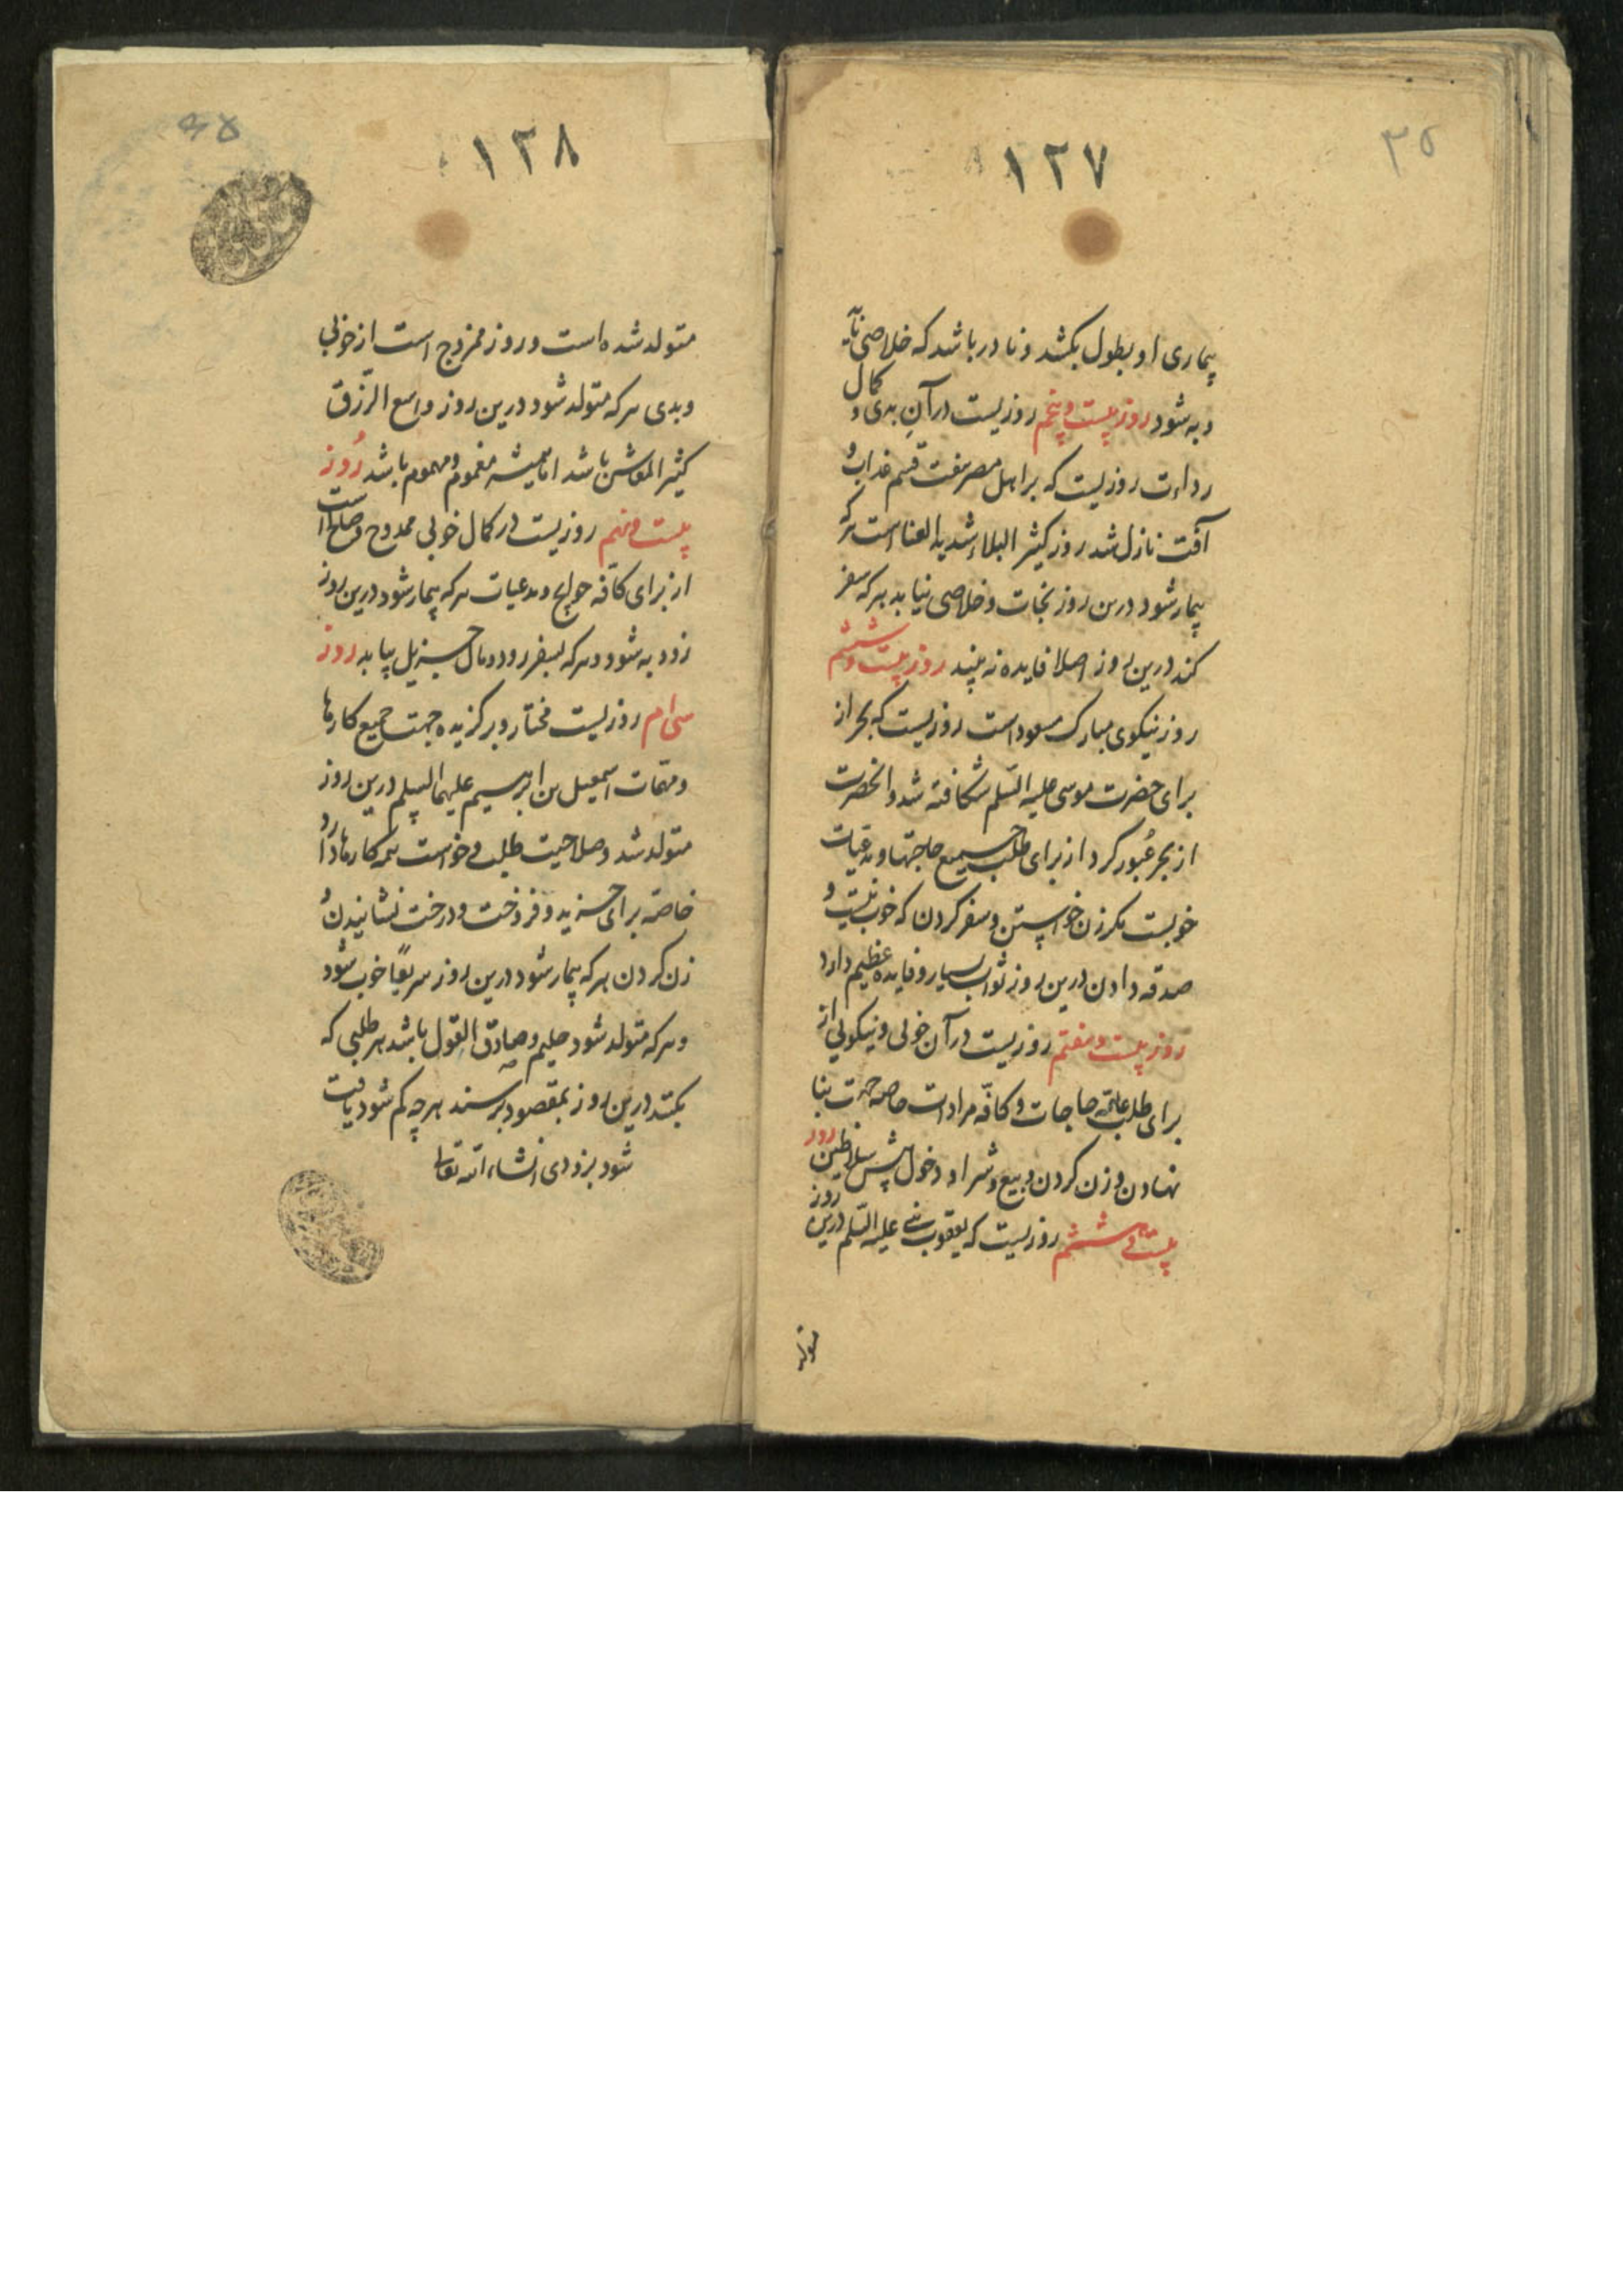 ۳۵
۱۲۷
بیماری او بطول بکشد و نادر باشد که خلاصی یابد
و به شود روز بیست و پنجم روزیست در آن بدی و کمال
رداءت روزیست که بر اهل مصر هفت قسم عذاب و
آفت نازل شد روز کثیر البلاء شدید العنا است هر که
بیمار شود درین روز نجات و خلاصی نیابد هر که سفر
کند درین روز اصلا فایده نه بیند روز بیست و ششم
روز نیکوی مبارک مسعود است روزیست که بحر از
برای حضرت موسی علیه السلم شکافته شد و انحضرت
از بحر عبور کرد از برای طلب جمیع حاجتها و مدعیات
خوبست مکر زن خواستن و سفر کردن که خوب نیست و
صدقه دادن درین روز ثواب بسیار و فایده عظیم دارد
روز بیست و هفتم روزیست در آن خوبی و نیکویی از
برای طلب عامه حاجات و کافه مرادات خاصه جهت بنا
نهادن و زن کردن و بیع و شرا و دخول پیش سلاطین روز
بیست و هشتم روزیست که یعقوب نبی علیه السلم درین روز
متولد
۱۲۸
متولد شده است و روز ممزوج است از خوبی
و بدی هر که متولد شود درین روز واسع الرزق
کثیر المعاش باشد اما همیشه مغموم و مهموم باشد روز
بیست و نهم روزیست در کمال خوبی ممدوح و صلح است
از برای کافه حوایج و مدعیات هر که بیمار شود درین روز
زود به شود و هر که بسفر رود مال جزیل بیابد روز
سی ام روزیست مختار و برکزیده جهت جمیع کارها
و مهمات اسمعیل بن ابرهیم علیهما السلم درین روز
متولد شد و صلاحیت طلب و خواست همه کارها دارد
خاصه برای خرید و فروخت و درخت نشانیدن و
زن کردن هر که بیمار شود درین روز سریعا خوب شود
و هر که متولد شود حلیم و صادق القول باشد هر طلبی که
بکنند درین روز بمقصود برسند هر چه کم شود یافت
شود بزودی انشاء الله تعالی